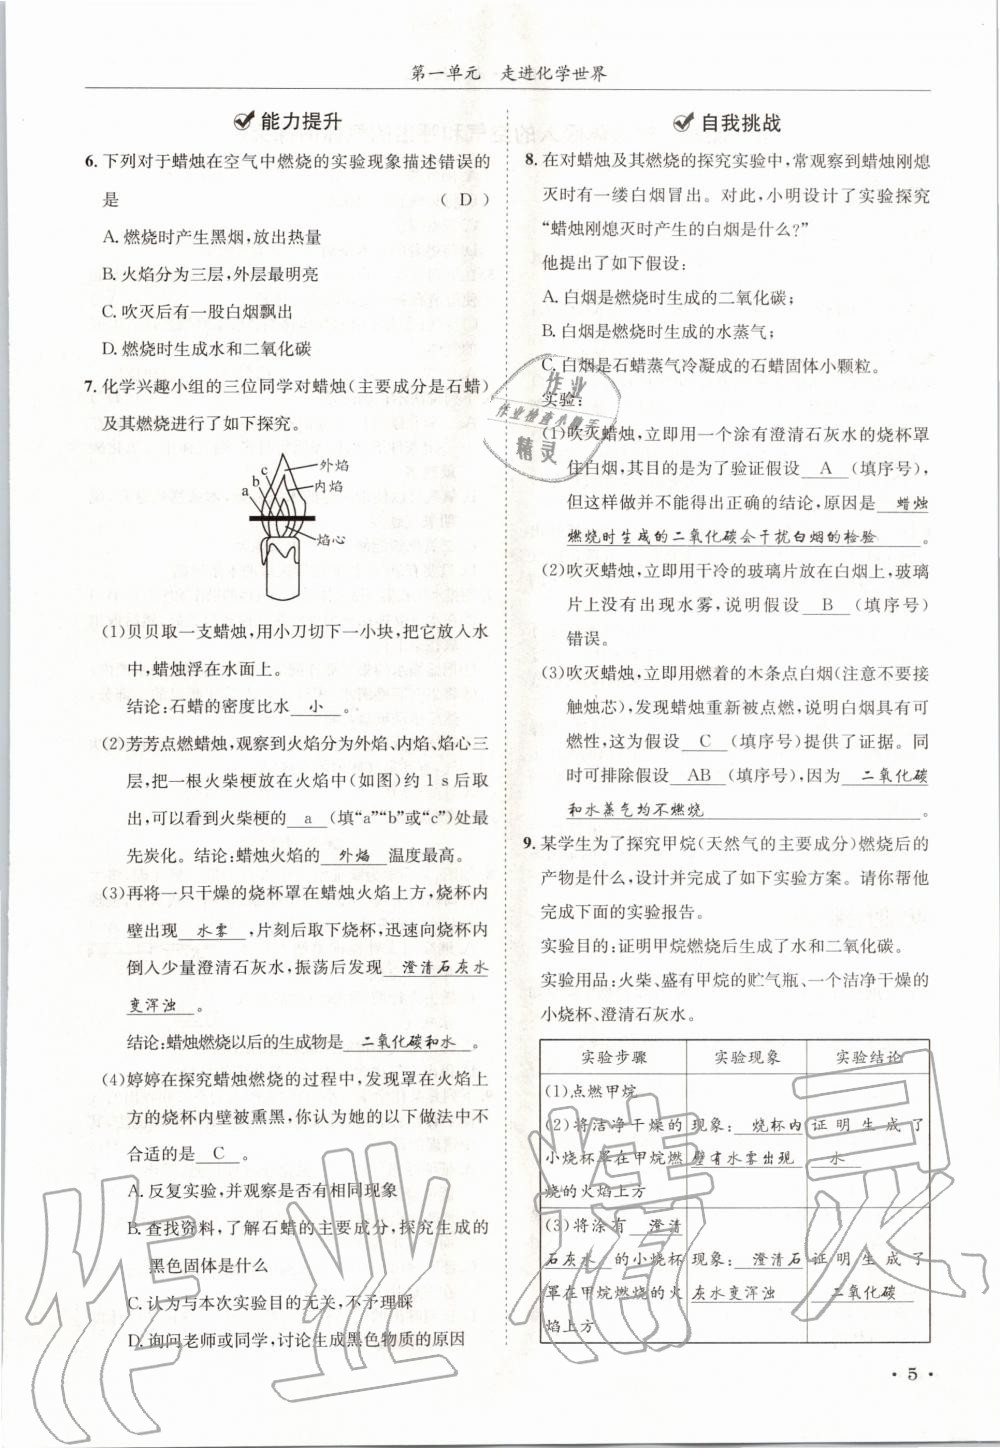 第一单元 走进化学世界
能力提升
6. 下列对于蜡烛在空气中燃烧的实验现象描述错误的
是 ( D )
A. 燃烧时产生黑烟,放出热量
B. 火焰分为三层,外层最明亮
C. 吹灭后有一股白烟飘出
D. 燃烧时生成水和二氧化碳
7. 化学兴趣小组的三位同学对蜡烛(主要成分是石蜡)
及其燃烧进行了如下探究。
c
b
a
外焰
内焰
焰心
(1)贝贝取一支蜡烛,用小刀切下一小块,把它放入水
中,蜡烛浮在水面上。
结论:石蜡的密度比水 小 。
(2)芳芳点燃蜡烛,观察到火焰分为外焰、内焰、焰心三
层,把一根火柴梗放在火焰中(如图)约 1 s 后取
出,可以看到火柴梗的 a (填“a”“b”或“c”)处最
先炭化。结论:蜡烛火焰的 外焰 温度最高。
(3)再将一只干燥的烧杯罩在蜡烛火焰上方,烧杯内
壁出现 水雾 ,片刻后取下烧杯,迅速向烧杯内
倒入少量澄清石灰水,振荡后发现 澄清石灰水
变浑浊 。
结论:蜡烛燃烧以后的生成物是 二氧化碳和水 。
(4)婷婷在探究蜡烛燃烧的过程中,发现罩在火焰上
方的烧杯内壁被熏黑,你认为她的以下做法中不
合适的是 C 。
A. 反复实验,并观察是否有相同现象
B. 查找资料,了解石蜡的主要成分,探究生成的
黑色固体是什么
C. 认为与本次实验目的无关,不予理睬
D. 询问老师或同学,讨论生成黑色物质的原因
自我挑战
8. 在对蜡烛及其燃烧的探究实验中,常观察到蜡烛刚熄
灭时有一缕白烟冒出。对此,小明设计了实验探究
“蜡烛刚熄灭时产生的白烟是什么?”
他提出了如下假设:
A. 白烟是燃烧时生成的二氧化碳;
B. 白烟是燃烧时生成的水蒸气;
C. 白烟是石蜡蒸气冷凝成的石蜡固体小颗粒。
实验:
(1)吹灭蜡烛,立即用一个涂有澄清石灰水的烧杯罩
住白烟,其目的是为了验证假设 A (填序号),
但这样做并不能得出正确的结论,原因是 蜡烛
燃烧时生成的二氧化碳会干扰白烟的检验 。
(2)吹灭蜡烛,立即用干冷的玻璃片放在白烟上,玻璃
片上没有出现水雾,说明假设 B (填序号)
错误。
(3)吹灭蜡烛,立即用燃着的木条点白烟(注意不要接
触烛芯),发现蜡烛重新被点燃,说明白烟具有可
燃性,这为假设 C (填序号)提供了证据。同
时可排除假设 AB (填序号),因为 二氧化碳
和水蒸气均不燃烧 。
9. 某学生为了探究甲烷(天然气的主要成分)燃烧后的
产物是什么,设计并完成了如下实验方案。请你帮他
完成下面的实验报告。
实验目的:证明甲烷燃烧后生成了水和二氧化碳。
实验用品:火柴、盛有甲烷的贮气瓶、一个洁净干燥的
小烧杯、澄清石灰水。
实验步骤 实验现象 实验结论
(1)点燃甲烷
(2)将洁净干燥的 现象: 烧杯内 证明生成了
小烧杯罩在甲烷燃 壁有水雾出现 水
烧的火焰上方
(3)将涂有 澄清
石灰水 的小烧杯 现象: 澄清石 证明生成了
罩在甲烷燃烧的火 灰水变浑浊 二氧化碳
焰上方
作业
作业检查小帮手
精灵
作业精灵
· 5 ·